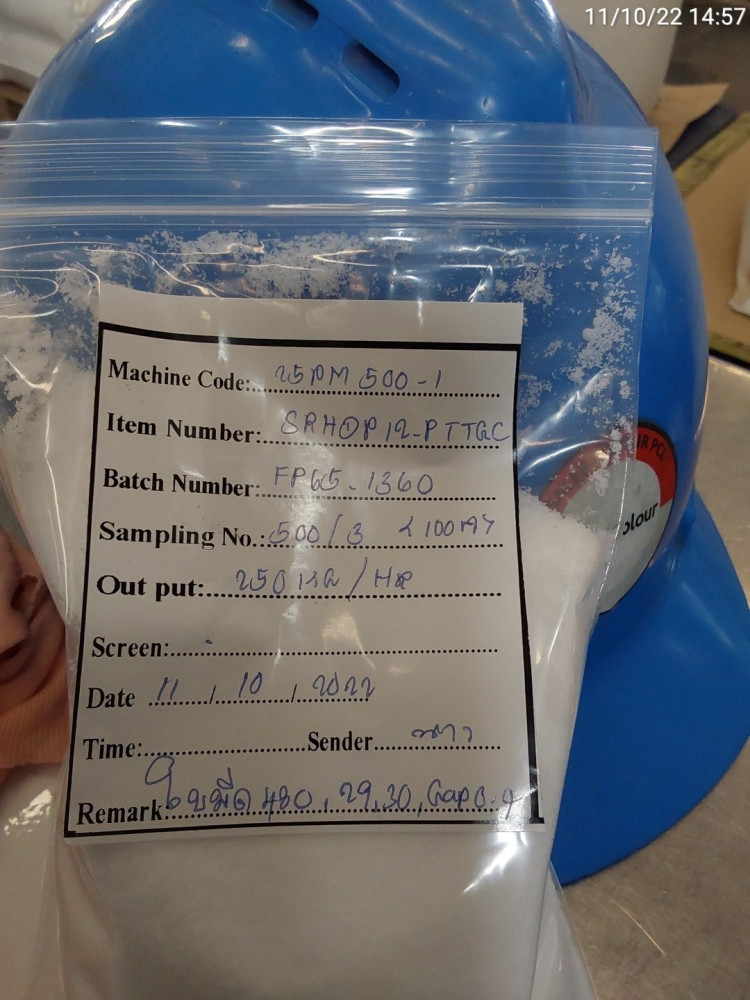 11/10/22 14:57
Machine Code: 25PM 500-1
Item Number: SRHDP12-PTTGC
Batch Number: FP65-1360
Sampling No.: 500/3
Out put: 250 KG/HR
Screen: -
Date 11 / 10 / 2022
Time: Sender
Remark: ใบมีด 480, 29, 30, Gap 0.4
olour